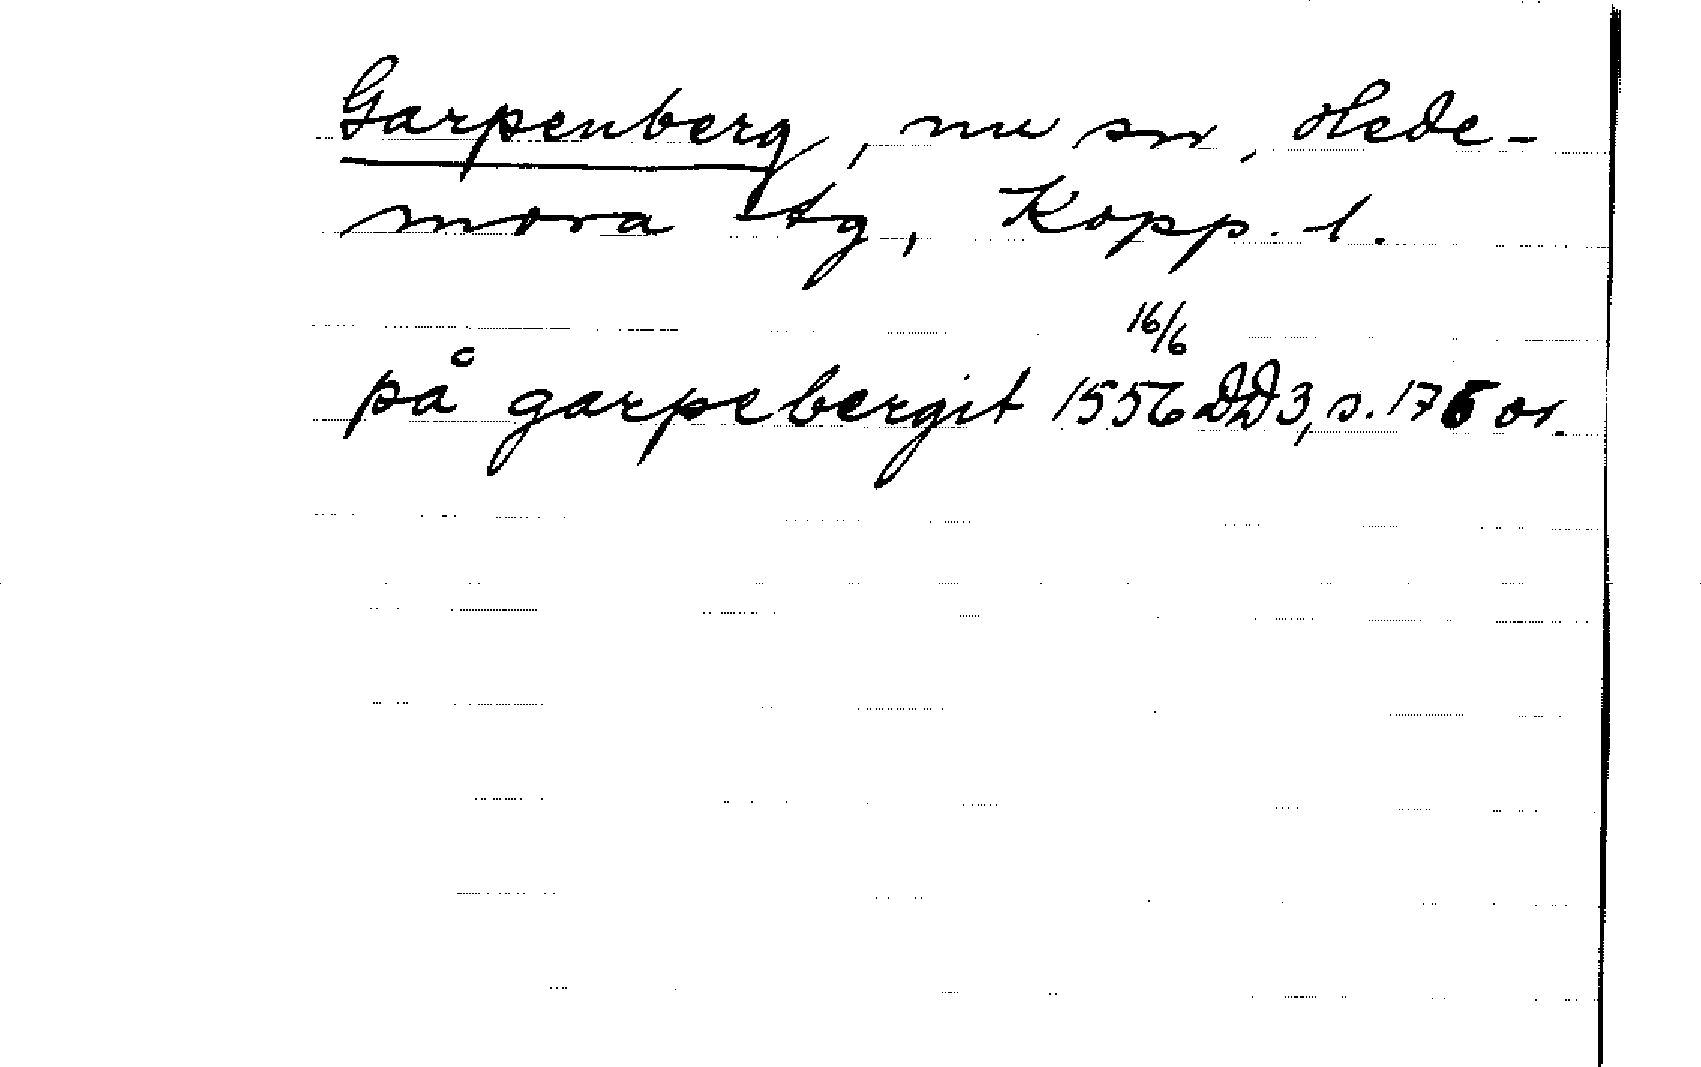 Garpenberg, nu sn, Hede-
mora tg, Kopp. l.
16/6
på garpebergit 1556 DD3, s. 176 or.